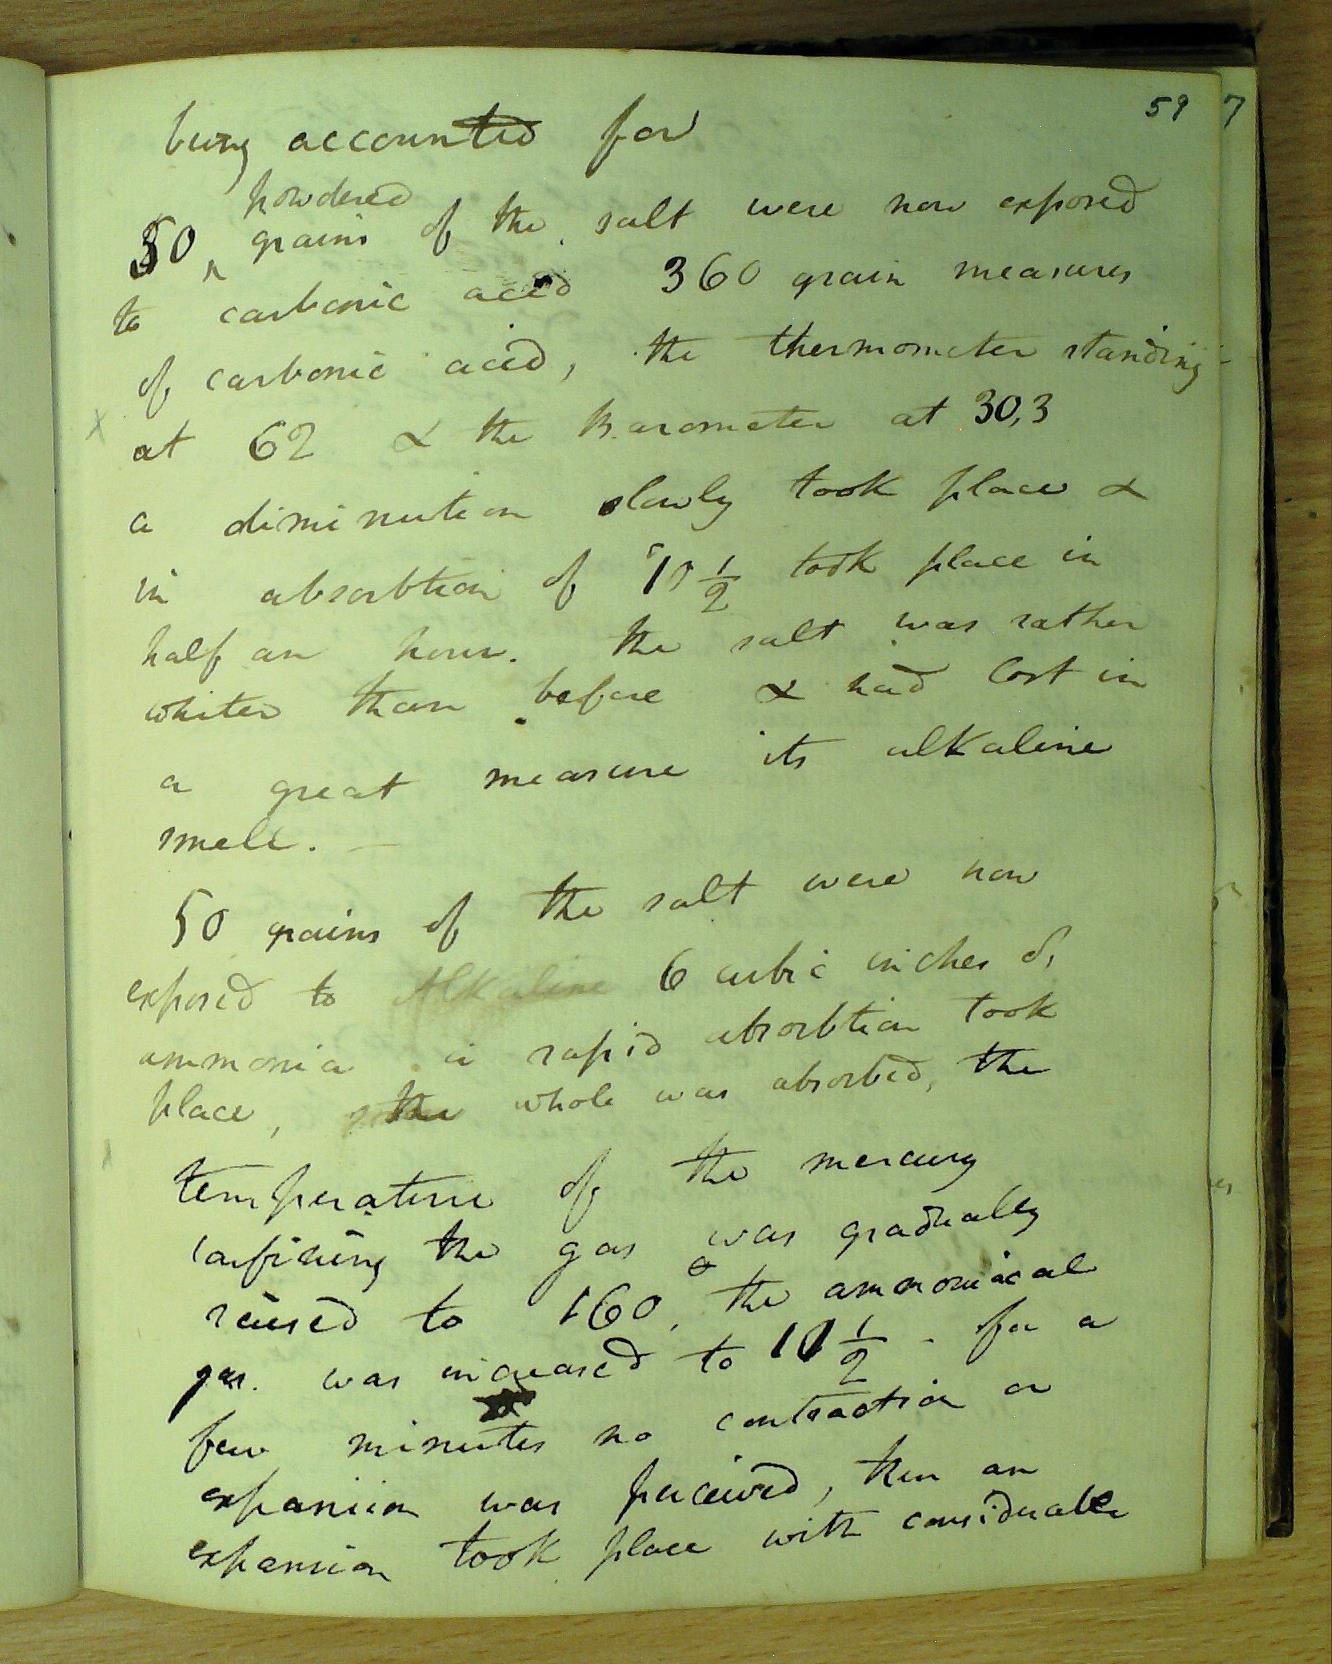 59 7
being accounted for
powdered
50 grains of the salt were now exposed
to carbonic acid 360 grain measures
of carbonic acid, the thermometer standing
x at 62 & the Barometer at 30,3
a diminution slowly took place &
in absorbtion of 10 1/2 took place in
half an hour. the salt was rather
whiter than before & had lost in
a great measure its alkaline
smell. —
50 grains of the salt were now
exposed to Alkaline 6 cubic inches of
ammonia . a rapid absorbtion took
place, the whole was absorbed, the
temperature of the mercury
confining the gas was gradually
raised to 160, & the ammoniacal
gas. was increased to 10 1/2 - for a
few minutes no contraction or
expansion was perceived, then an
expansion took place with considerable